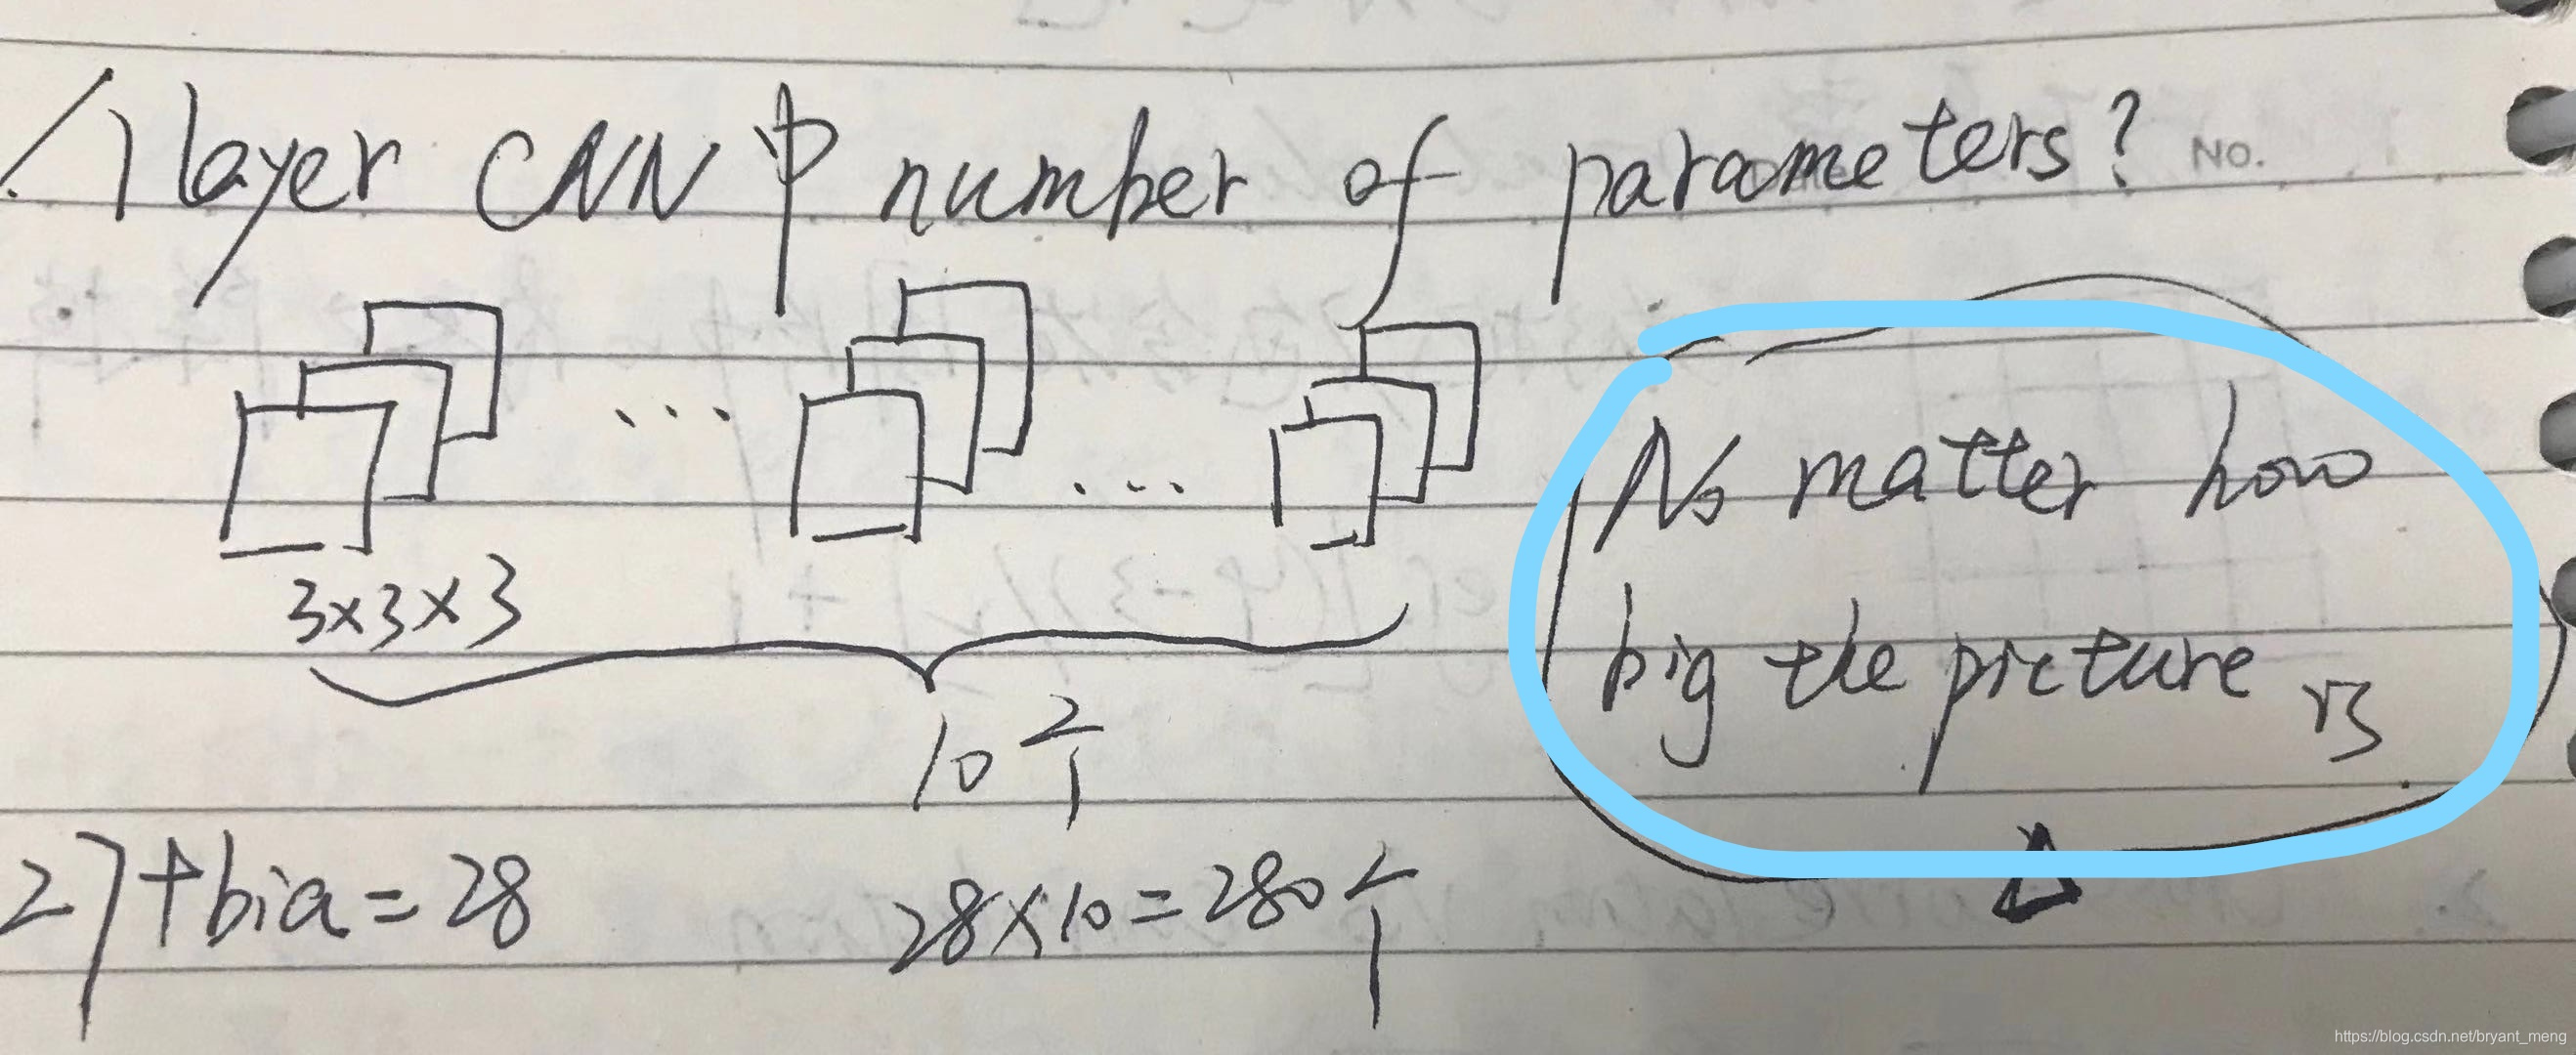 1 layer CNN 中 number of parameters?
NO.
No matter how
big the picture is.
3×3×3
10个
27+bia=28
28×10=280个
https://blog.csdn.net/bryant_meng